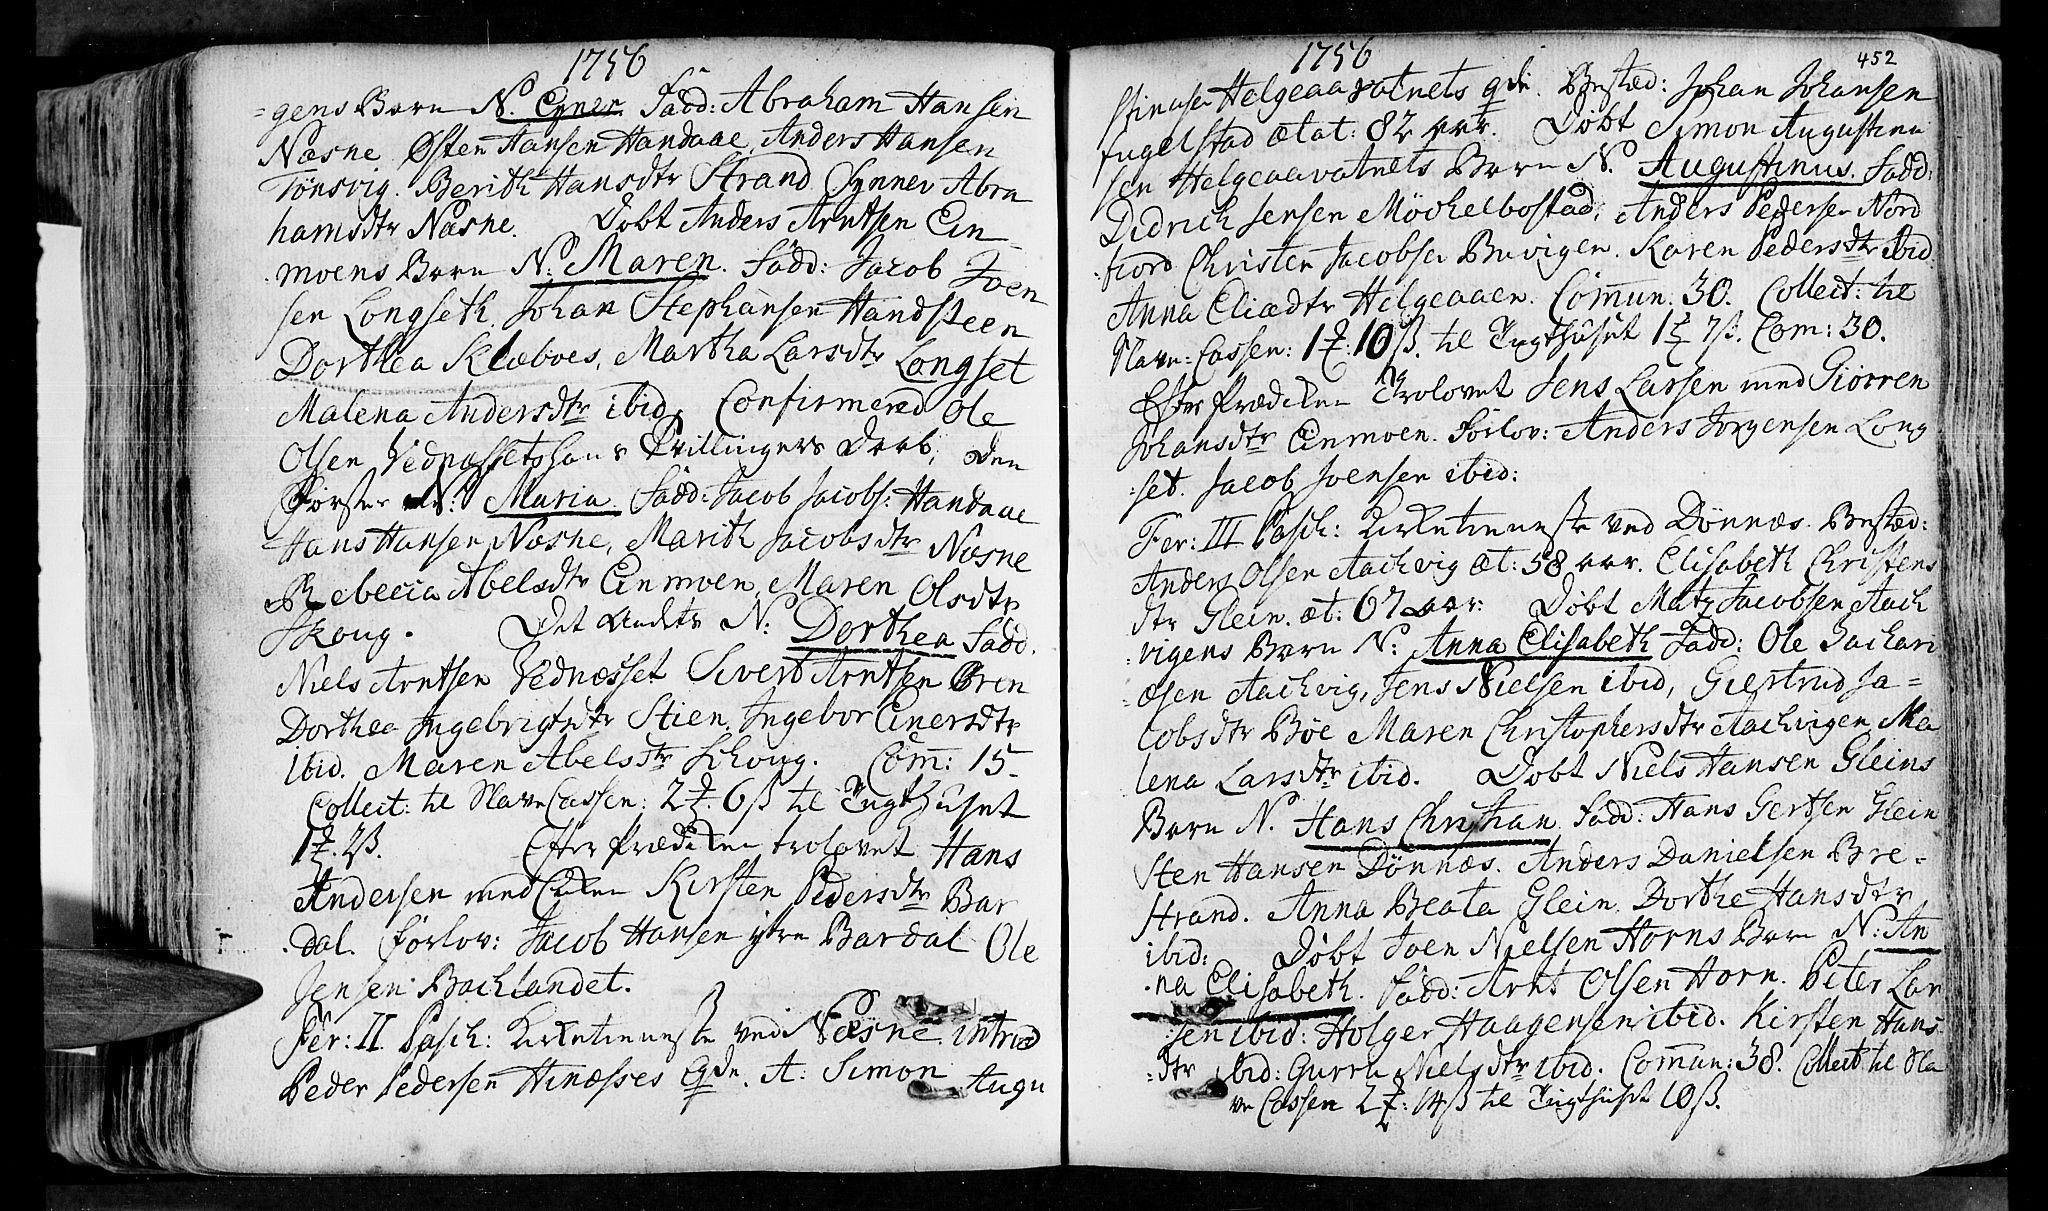 1756
gens Barn N. Cyner. Fadd: Abraham Hansen
Næsne Østen Hansen Handaae, Anders Hansen
Tønsvig. Berith Hansdtr Strand Synnev Abra
hamsdtr Næsne. Døbt Anders Arntsen Ein-
moens Barn N: Maren. Fadd: Jacob Joen
sen Longseth, Johan Stephansen Handsteen
Dorthea Klæboes, Martha Larsdtr Longset
Malena Andersdtr ibid. Confirmered Ole
Olsen Vednæssets hans Tvillingers Daab, den
Første N: Maria Fadd: Jacob Jacobs: Handaae
Hans Hansen Næsne, Marith Jacobsdtr Næsne
Rebecca Abelsdtr Einmoen, Maren Olsdtr
Skoug. Det andets N: Dorthea Fadd.
Niels Arntsen Vednæsset Sivert Arntsen Bren
Dorthea Ingebrigtsdtr Stien, Ingebor Einersdtr
ibid. Maren Abelsdtr Schoug. Com: 15-
Collect: til Slave Cassen: 2 ꝥ. 6 ß til Tugthuset
1 ꝥ. 7 ß. Efter Prædiken trolovet Hans
Andersen med Kirsten Pedersdtr Bar
dal. Forlov: Jacob Hansen ytre Bardal Ole
Jensen Bachlandet.
Fer: II. Pasch: Kirketieneste ved Næsne. introd
Peder Pedersen Hinæsses qde. A: Simon Augu
1756
452
stinusen Helgeaavatnets qde. Bested: Johan Johansen
Fugelstad ætat: 82 aar. Døbt Simon Augustinu
sen Helgeaavatnets Barn N. Augustinus. Fadd:
Didrich Jensen Møchelbostad, Anders Pedersen Nord
fiord Christen Jacobsen Buvigen. Karen Pedersdtr ibid
Anna Eliædtr Helgeaaen. Com̄un. 30. Collect: til
Slave-Cassen: 1 ꝥ. 10 ß. til Tugthuset 1 ꝥ 7 ß. Com: 30.
Efter Prædiken Trolovet Jens Larsen med Giørren
Johansdtr Einmoen. Forlov: Anders Jorgensen Long
set. Jacob Joensen ibid:
Fer: III Pasch: Kirketieneste ved Dønnæs. Bested:
Anders Olsen Aachvig æt: 58 aar. Elisabeth Christens
dtr Glein. æt: 67 aar: Døbt Matz Jacobsen Aach
vigens Barn N: Anna Elisabeth Fadd: Ole Zachari
æsen Aachvig, Jens Nielsen ibid, Giertrud Ja-
cobsdtr Bøe Maren Christophersdtr Aachvigen Ma
lena Larsdtr ibid. Døbt Niels Hansen Gleins
Barn N. Hans Christian Fadd: Hans Gertsen Glein
Sten Hansen Dønnæs. Anders Danielsen Bre-
strand. Anna Beata Glein. Dorthe Hansdtr
ibid: Døbt Joen Nielsen Horns Barn N: An
na Elisabeth. Fadd: Arnt Olsen Horn. Peter Lar
sen ibid: Holger Haagensen ibid. Kirsten Hans
dtr ibid: Gurru Nielsdtr ibid. Com̄un: 38. Collect til Sla
ve Cassen 2 ꝥ: 14 ß til Tugthuset 10 ß.